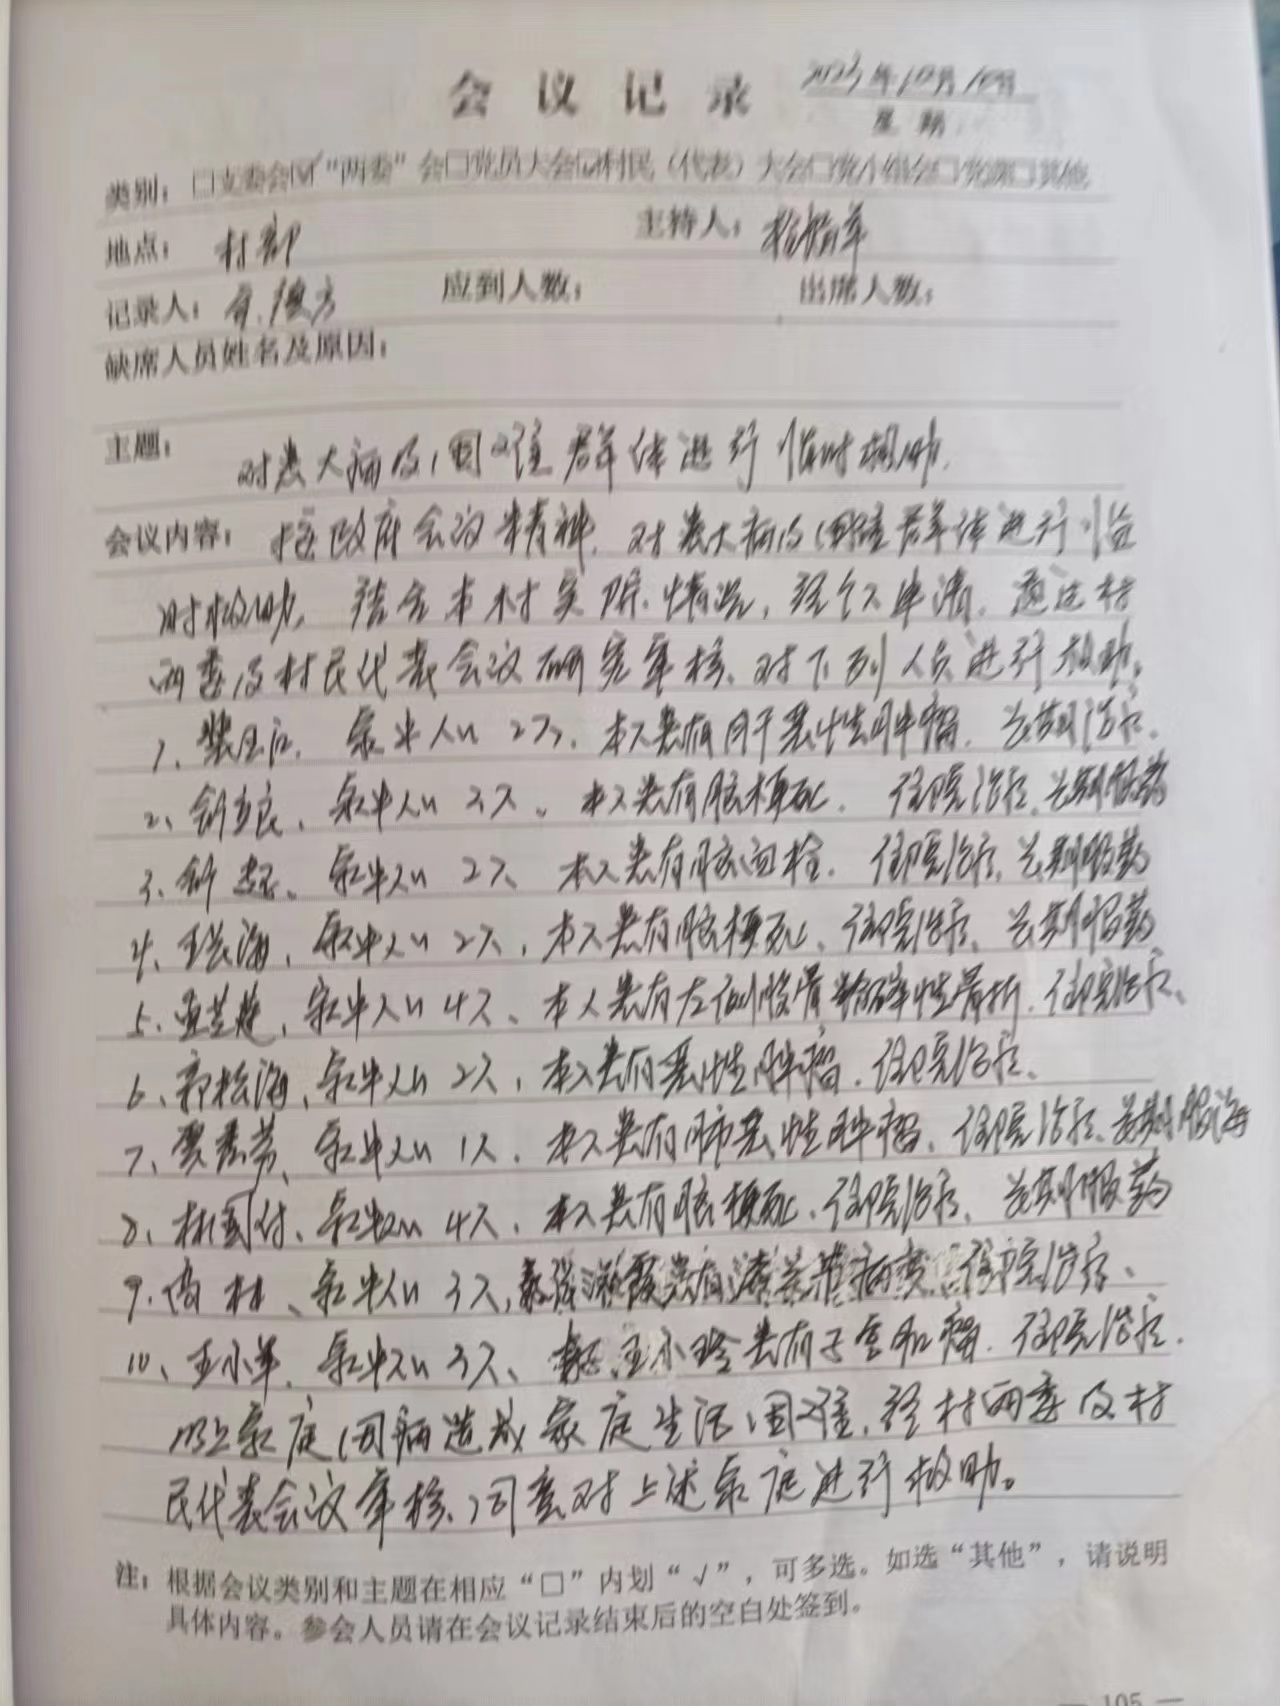 会议记录 2023年10月10日
星期
类别：□支委会☑“两委”会□党员大会☑村民（代表）大会□党小组会□党课□其他
地点： 村部 主持人：
记录人： 应到人数： 出席人数：
缺席人员姓名及原因：
主题： 对患大病及困难群体进行临时救助.
会议内容： 按政府会议精神. 对患大病及困难群体进行临
时救助, 结合本村实际情况, 经个人申请. 通过村
两委及村民代表会议研究审核、对下列人员进行救助。
1、 家中人口2人、本人患有肝恶性肿瘤. 长期治疗.
2、 家中人口3人、本人患有脑梗死. 住院治疗. 长期服药
3、 家中人口2人 本人患有脑血栓. 住院治疗. 长期服药
4、王 海、家中人口2人, 本人患有脑梗死、住院治疗、长期服药
5、 家中人口4人、本人患有左侧股骨粉碎性骨折. 住院治疗、
6、郭松海、家中人口2人, 本人患有恶性肿瘤. 住院治疗、
7、贾秀芳、家中人口1人. 本人患有肺恶性肿瘤、住院治疗、长期服
8、林国付、家中人口4人, 本人患有脑梗死、住院治疗、长期服药
9、 林、家中人口3人, 患有 病变 住院治疗、
10、王小军. 家中人口3人、 王小玲患有子宫肌瘤. 住院治疗.
以上家庭因病造成家庭生活困难, 经村两委及村
民代表会议审核、同意对上述家庭进行救助。
注：根据会议类别和主题在相应“□”内划“√”，可多选。如选“其他”，请说明
具体内容。参会人员请在会议记录结束后的空白处签到。
— 105 —